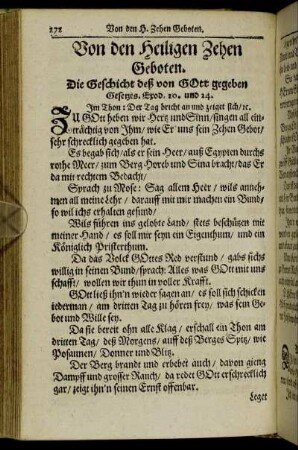 272 Von den H. Zehen Geboten.
Von den Heiligen Zehen
Geboten.
Die Geschicht deß von GOtt gegeben
Gesetzes. Exod. 20. und 24.
Im Thon: Der Tag bricht an und zeiget sich/ ꝛc.
ZU GOtt heben wir Hertz und Sinn/ singen all ein-
trächtig von Ihm/ wie Er uns sein Zehen Gebot/
sehr schrecklich gegeben hat.
Es begab sich/ als er sein Heer/ auß Egypten durchs
rothe Meer/ zum Berg Horeb und Sina bracht/ das Er
da mit rechtem Bedacht/
Sprach zu Mose: Sag allem Heer/ wils anneh-
men all meine Lehr/ darauff mit mir machen ein Bund/
so wil ichs erhalten gesund/
Wils führen ins gelobte Land/ stets beschützen mit
meiner Hand/ es soll mir seyn ein Eigenthum/ und ein
Königlich Priesterthum.
Da das Volck GOttes Red verstund/ gabs sichs
willig in seinen Bund/ sprach: Alles was GOtt mit uns
schafft/ wollen wir thun in voller Krafft.
GOtt ließ ihn'n wieder sagen an/ es soll sich schicken
iederman/ am dritten Tag zu hören frey/ was sein Ge-
bot und Wille sey.
Da sie bereit ohn alle Klag/ erschall ein Thon am
dritten Tag/ deß Morgens/ auff deß Berges Spitz/ wie
Posaunen/ Donner und Blitz.
Der Berg brandt und erbebet auch/ davon gieng
Dampff und grosser Rauch/ da redet GOtt erschrecklich
gar/ zeigt ihn'n seinen Ernst offenbar.
Leget